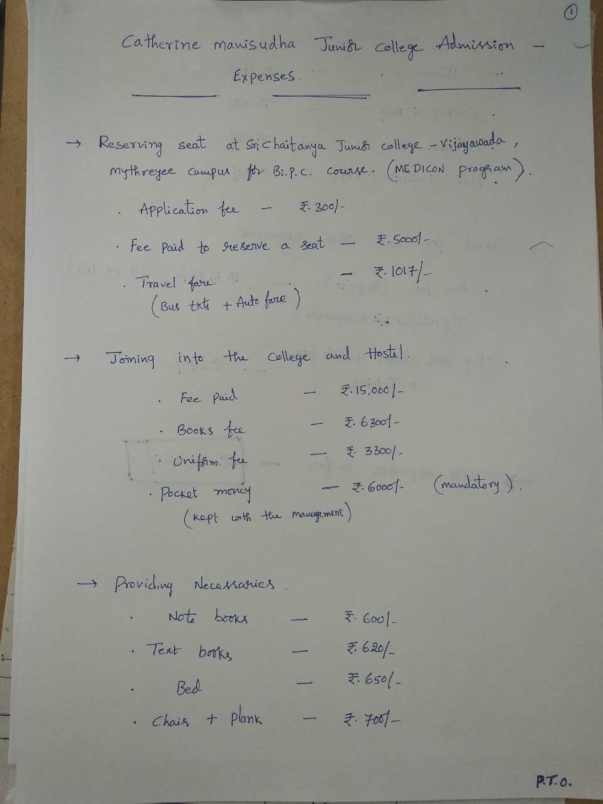 1
Catherine manisudha Junior college Admission -
Expenses.
→ Reserving seat at Sri Chaitanya Junior college - Vijayawada,
mythreyee campus for Bi.P.C. course. (MEDICON program).
. Application fee - ₹. 300/-
. Fee paid to reserve a seat - ₹. 5000/-
. Travel fare - ₹. 1017/-
(Bus tkts + Auto fare)
→ Joining into the college and Hostel.
. Fee Paid - ₹. 15,000/-
. Books fee - ₹. 6300/-
. Uniform fee - ₹. 3300/-
. Pocket money - ₹. 6000/- (mandatory).
(kept with the management)
→ Providing Necessaries.
. Note books - ₹. 600/-
. Text books - ₹. 620/-
. Bed - ₹. 650/-
. Chair + Plank - ₹. 700/-
P.T.O.